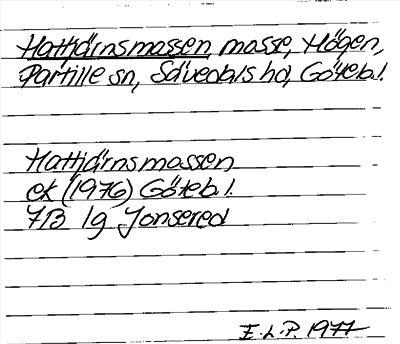 Hattjärnsmossen, mosse, Högen,
Partille sn, Sävedals hd, Göteb.l.
Hattjärnsmossen
ek (1976) Göteb.l.
7B 1g Jonsered
E.L.P. 1977